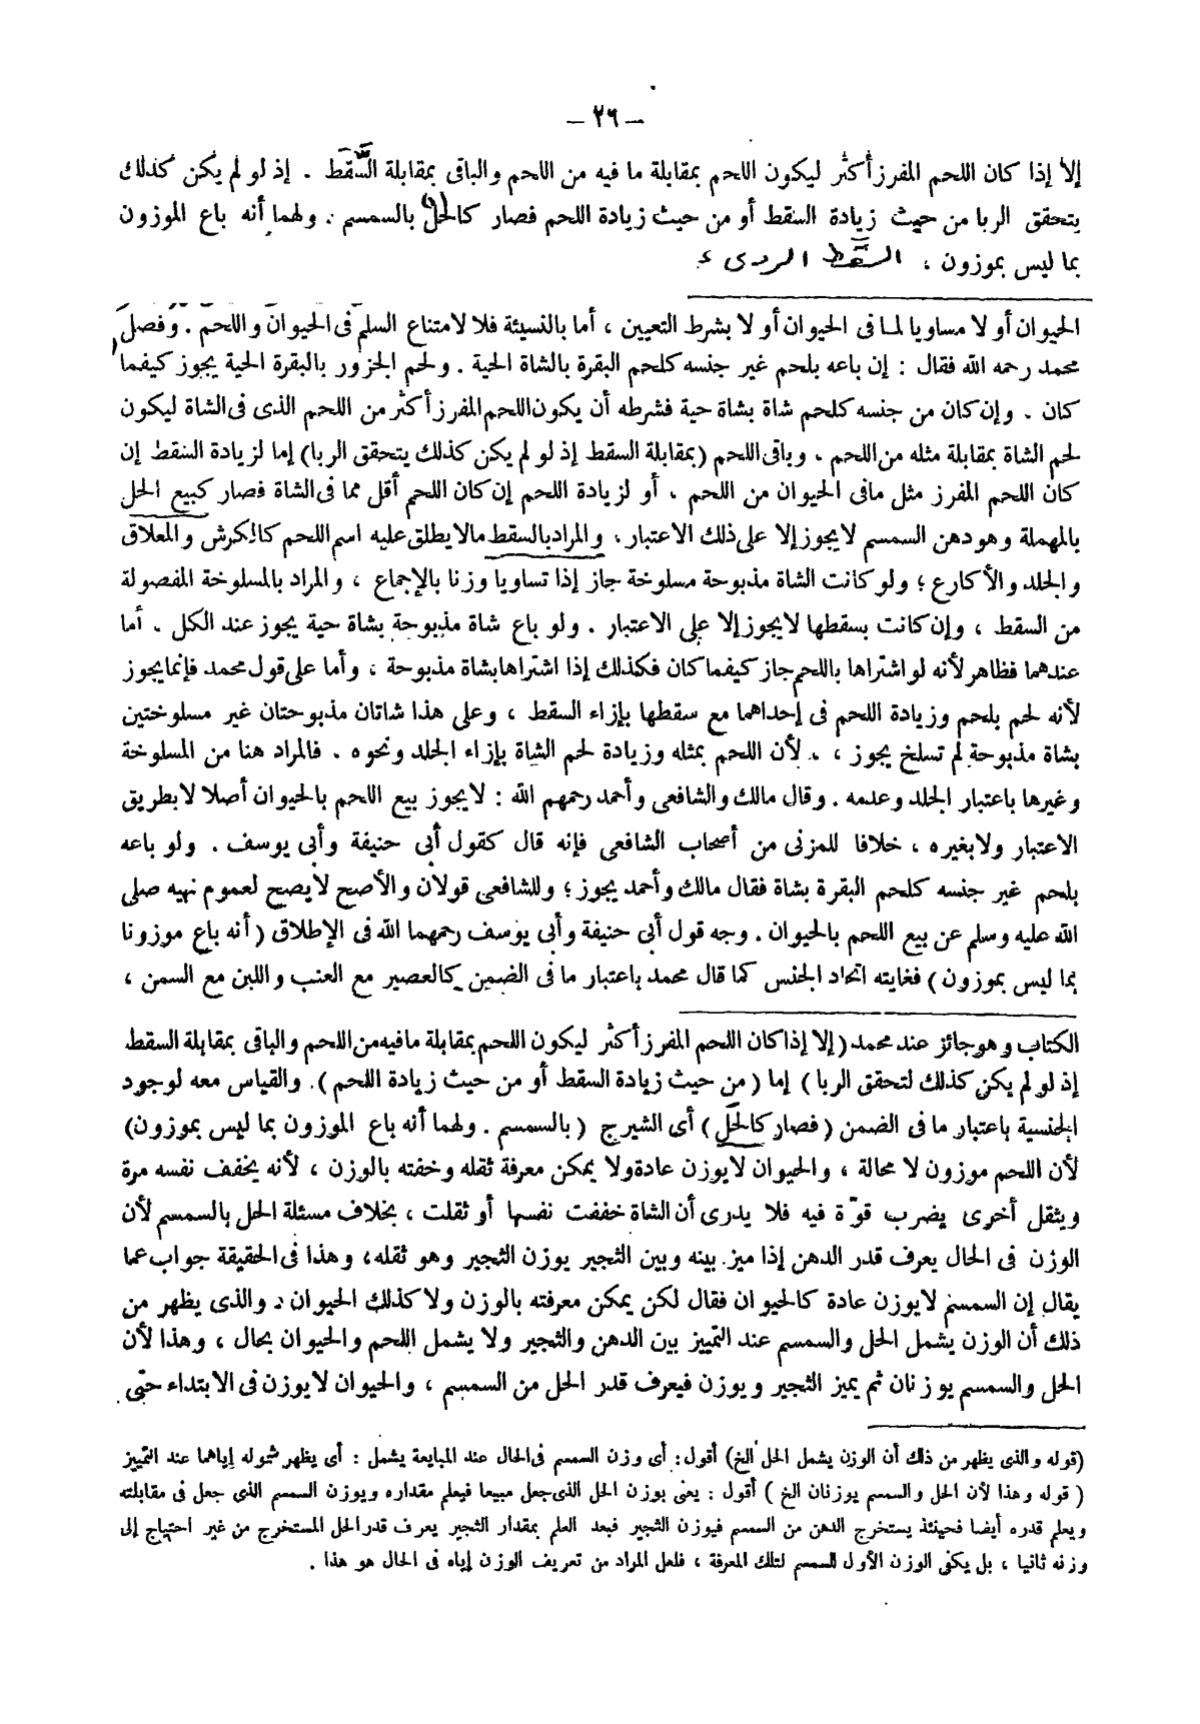 – ٢٦ –
إلا إذا كان اللحم المفرز أكثر ليكون اللحم بمقابلة ما فيه من اللحم والباقى بمقابلة السَّقَط . إذ لو لم يكن كذلك
يتحقق الربا من حيث زيادة السقط أو من حيث زيادة اللحم فصار كالحل بالسمسم . ولهما أنه باع الموزون
بما ليس بموزون ، السقط الردىء
الحيوان أو لا مساويا لما فى الحيوان أو لا بشرط التعيين ، أما بالنسيئة فلا لامتناع السلم فى الحيوان واللحم . وفصل
محمد رحمه الله فقال : إن باعه بلحم غير جنسه كلحم البقرة بالشاة الحية . ولحم الجزور بالبقرة الحية يجوز كيفما
كان . وإن كان من جنسه كلحم شاة بشاة حية فشرطه أن يكون اللحم المفرز أكثر من اللحم الذى فى الشاة ليكون
لحم الشاة بمقابلة مثله من اللحم ، وباقى اللحم (بمقابلة السقط إذ لو لم يكن كذلك يتحقق الربا) إما لزيادة السقط إن
كان اللحم المفرز مثل مافى الحيوان من اللحم ، أو لزيادة اللحم إن كان اللحم أقل مما فى الشاة فصار كبيع الحل
بالمهملة وهو دهن السمسم لا يجوز إلا على ذلك الاعتبار ، والمراد بالسقط مالا يطلق عليه اسم اللحم كالكرش والمعلاق
والجلد والأكارع ؛ ولو كانت الشاة مذبوحة مسلوخة جاز إذا تساويا وزنا بالإجماع ، والمراد بالمسلوخة المفصولة
من السقط ، وإن كانت بسقطها لا يجوز إلا على الاعتبار . ولو باع شاة مذبوحة بشاة حية يجوز عند الكل . أما
عندهما فظاهر لأنه لو اشتراها باللحم جاز كيفما كان فكذلك إذا اشتراها بشاة مذبوحة ، وأما على قول محمد فإنما يجوز
لأنه لحم بلحم وزيادة اللحم فى إحداهما مع سقطها بإزاء السقط ، وعلى هذا شاتان مذبوحتان غير مسلوختين
بشاة مذبوحة لم تسلخ يجوز ، لأن اللحم بمثله وزيادة لحم الشاة بإزاء الجلد ونحوه . فالمراد هنا من المسلوخة
وغيرها باعتبار الجلد وعدمه . وقال مالك والشافعى وأحمد رحمهم الله : لا يجوز بيع اللحم بالحيوان أصلا لا بطريق
الاعتبار ولا بغيره ، خلافا للمزنى من أصحاب الشافعى فإنه قال كقول أبى حنيفة وأبى يوسف . ولو باعه
بلحم غير جنسه كلحم البقرة بشاة فقال مالك وأحمد يجوز ؛ وللشافعى قولان والأصح لا يصح لعموم نهيه صلى
الله عليه وسلم عن بيع اللحم بالحيوان . وجه قول أبى حنيفة وأبى يوسف رحمهما الله فى الإطلاق (أنه باع موزونا
بما ليس بموزون) فغايته اتحاد الجنس كما قال محمد باعتبار ما فى الضمن كالعصير مع العنب واللبن مع السمن ،
الكتاب وهو جائز عند محمد (إلا إذا كان اللحم المفرز أكثر ليكون اللحم بمقابلة مافيه من اللحم والباقى بمقابلة السقط
إذ لو لم يكن كذلك لتحقق الربا) إما (من حيث زيادة السقط أو من حيث زيادة اللحم) . والقياس معه لوجود
الجنسية باعتبار ما فى الضمن (فصار كالحَل) أى الشيرج (بالسمسم . ولهما أنه باع الموزون بما ليس بموزون)
لأن اللحم موزون لا محالة ، والحيوان لا يوزن عادة ولا يمكن معرفة ثقله وخفته بالوزن ، لأنه يخفف نفسه مرة
ويثقل أخرى يضرب قوّة فيه فلا يدرى أن الشاة خففت نفسها أو ثقلت ، بخلاف مسئلة الحل بالسمسم لأن
الوزن فى الحال يعرف قدر الدهن إذا ميز بينه وبين الثجير يوزن الثجير وهو ثقله ، وهذا فى الحقيقة جواب عما
يقال إن السمسم لا يوزن عادة كالحيوان فقال لكن يمكن معرفته بالوزن ولا كذلك الحيوان ، والذى يظهر من
ذلك أن الوزن يشمل الحل والسمسم عند التمييز بين الدهن والثجير ولا يشمل اللحم والحيوان بحال ، وهذا لأن
الحل والسمسم يوزنان ثم يميز الثجير ويوزن فيعرف قدر الحل من السمسم ، والحيوان لا يوزن فى الابتداء حتى
(قوله والذى يظهر من ذلك أن الوزن يشمل الحل الخ) أقول : أى وزن السمسم فى الحال عند المبايعة يشمل : أى يظهر شموله إياهما عند التمييز
(قوله وهذا لأن الحل والسمسم يوزنان الخ) أقول : يعنى يوزن الحل الذى جعل مبيعا فيعلم مقداره ويوزن السمسم الذى جعل فى مقابلته
ويعلم قدره أيضا فحينئذ يستخرج الدهن من السمسم فيوزن الثجير فبعد العلم بمقدار الثجير يعرف قدر الحل المستخرج من غير احتياج إلى
وزنه ثانيا ، بل يكفى الوزن الأول للسمسم لتلك المعرفة ، فلعل المراد من تعريف الوزن إياه فى الحال هو هذا .